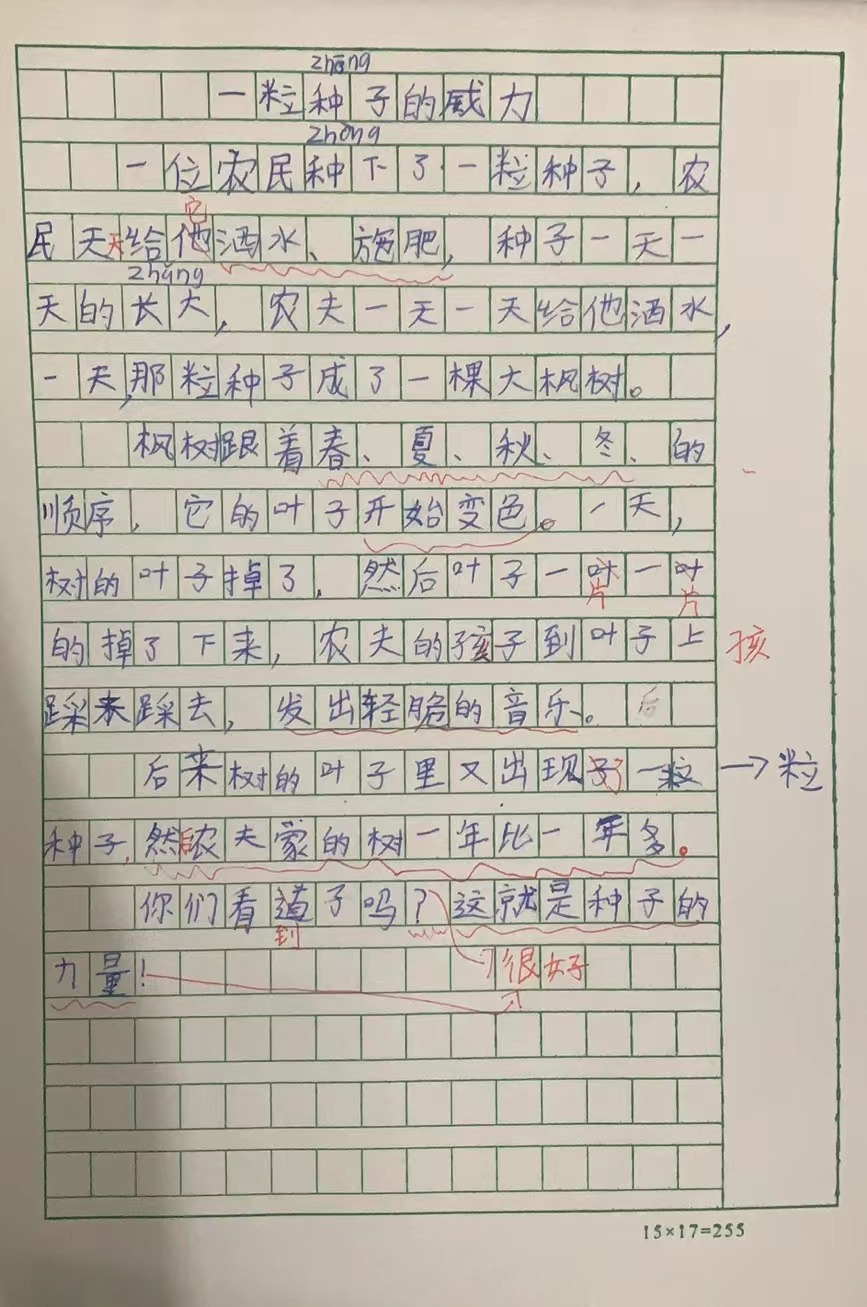 zhǒng
一粒种子的威力
zhòng
一位农民种下了一粒种子，农
它
民天天给他洒水、施肥，种子一天一
zhǎng
天的长大，农夫一天一天给他洒水，
一天，那粒种子成了一棵大枫树。
枫树跟着春、夏、秋、冬、的
顺序，它的叶子开始变色。一天，
树的叶子掉了，然后叶子一叶一叶
片 片
的掉了下来，农夫的孩子到叶子上 孩
踩来踩去，发出轻脆的音乐。后
后来树的叶子里又出现了一粒→粒
种子，然后农夫家的树一年比一年多。
你们看道子吗？这就是种子的
到
力量！ 很好
15×17=255